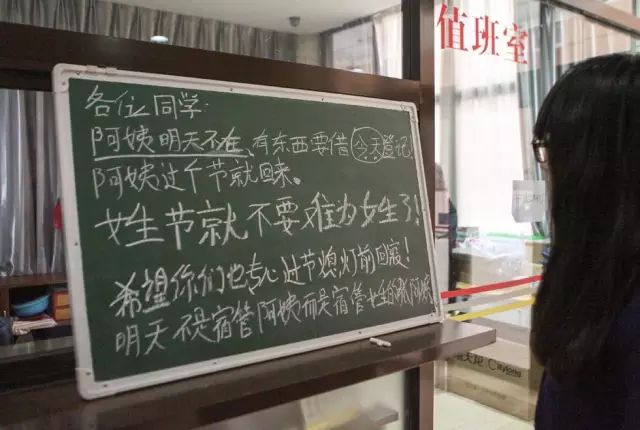 值班室
各位同学:
阿姨明天不在,有东西要借今天登记!
阿姨过个节就回来。
女生节就不要难为女生了!
希望你们也专心过节熄灯前回寝!
明天不是宿管阿姨而是宿管女生的阿姨